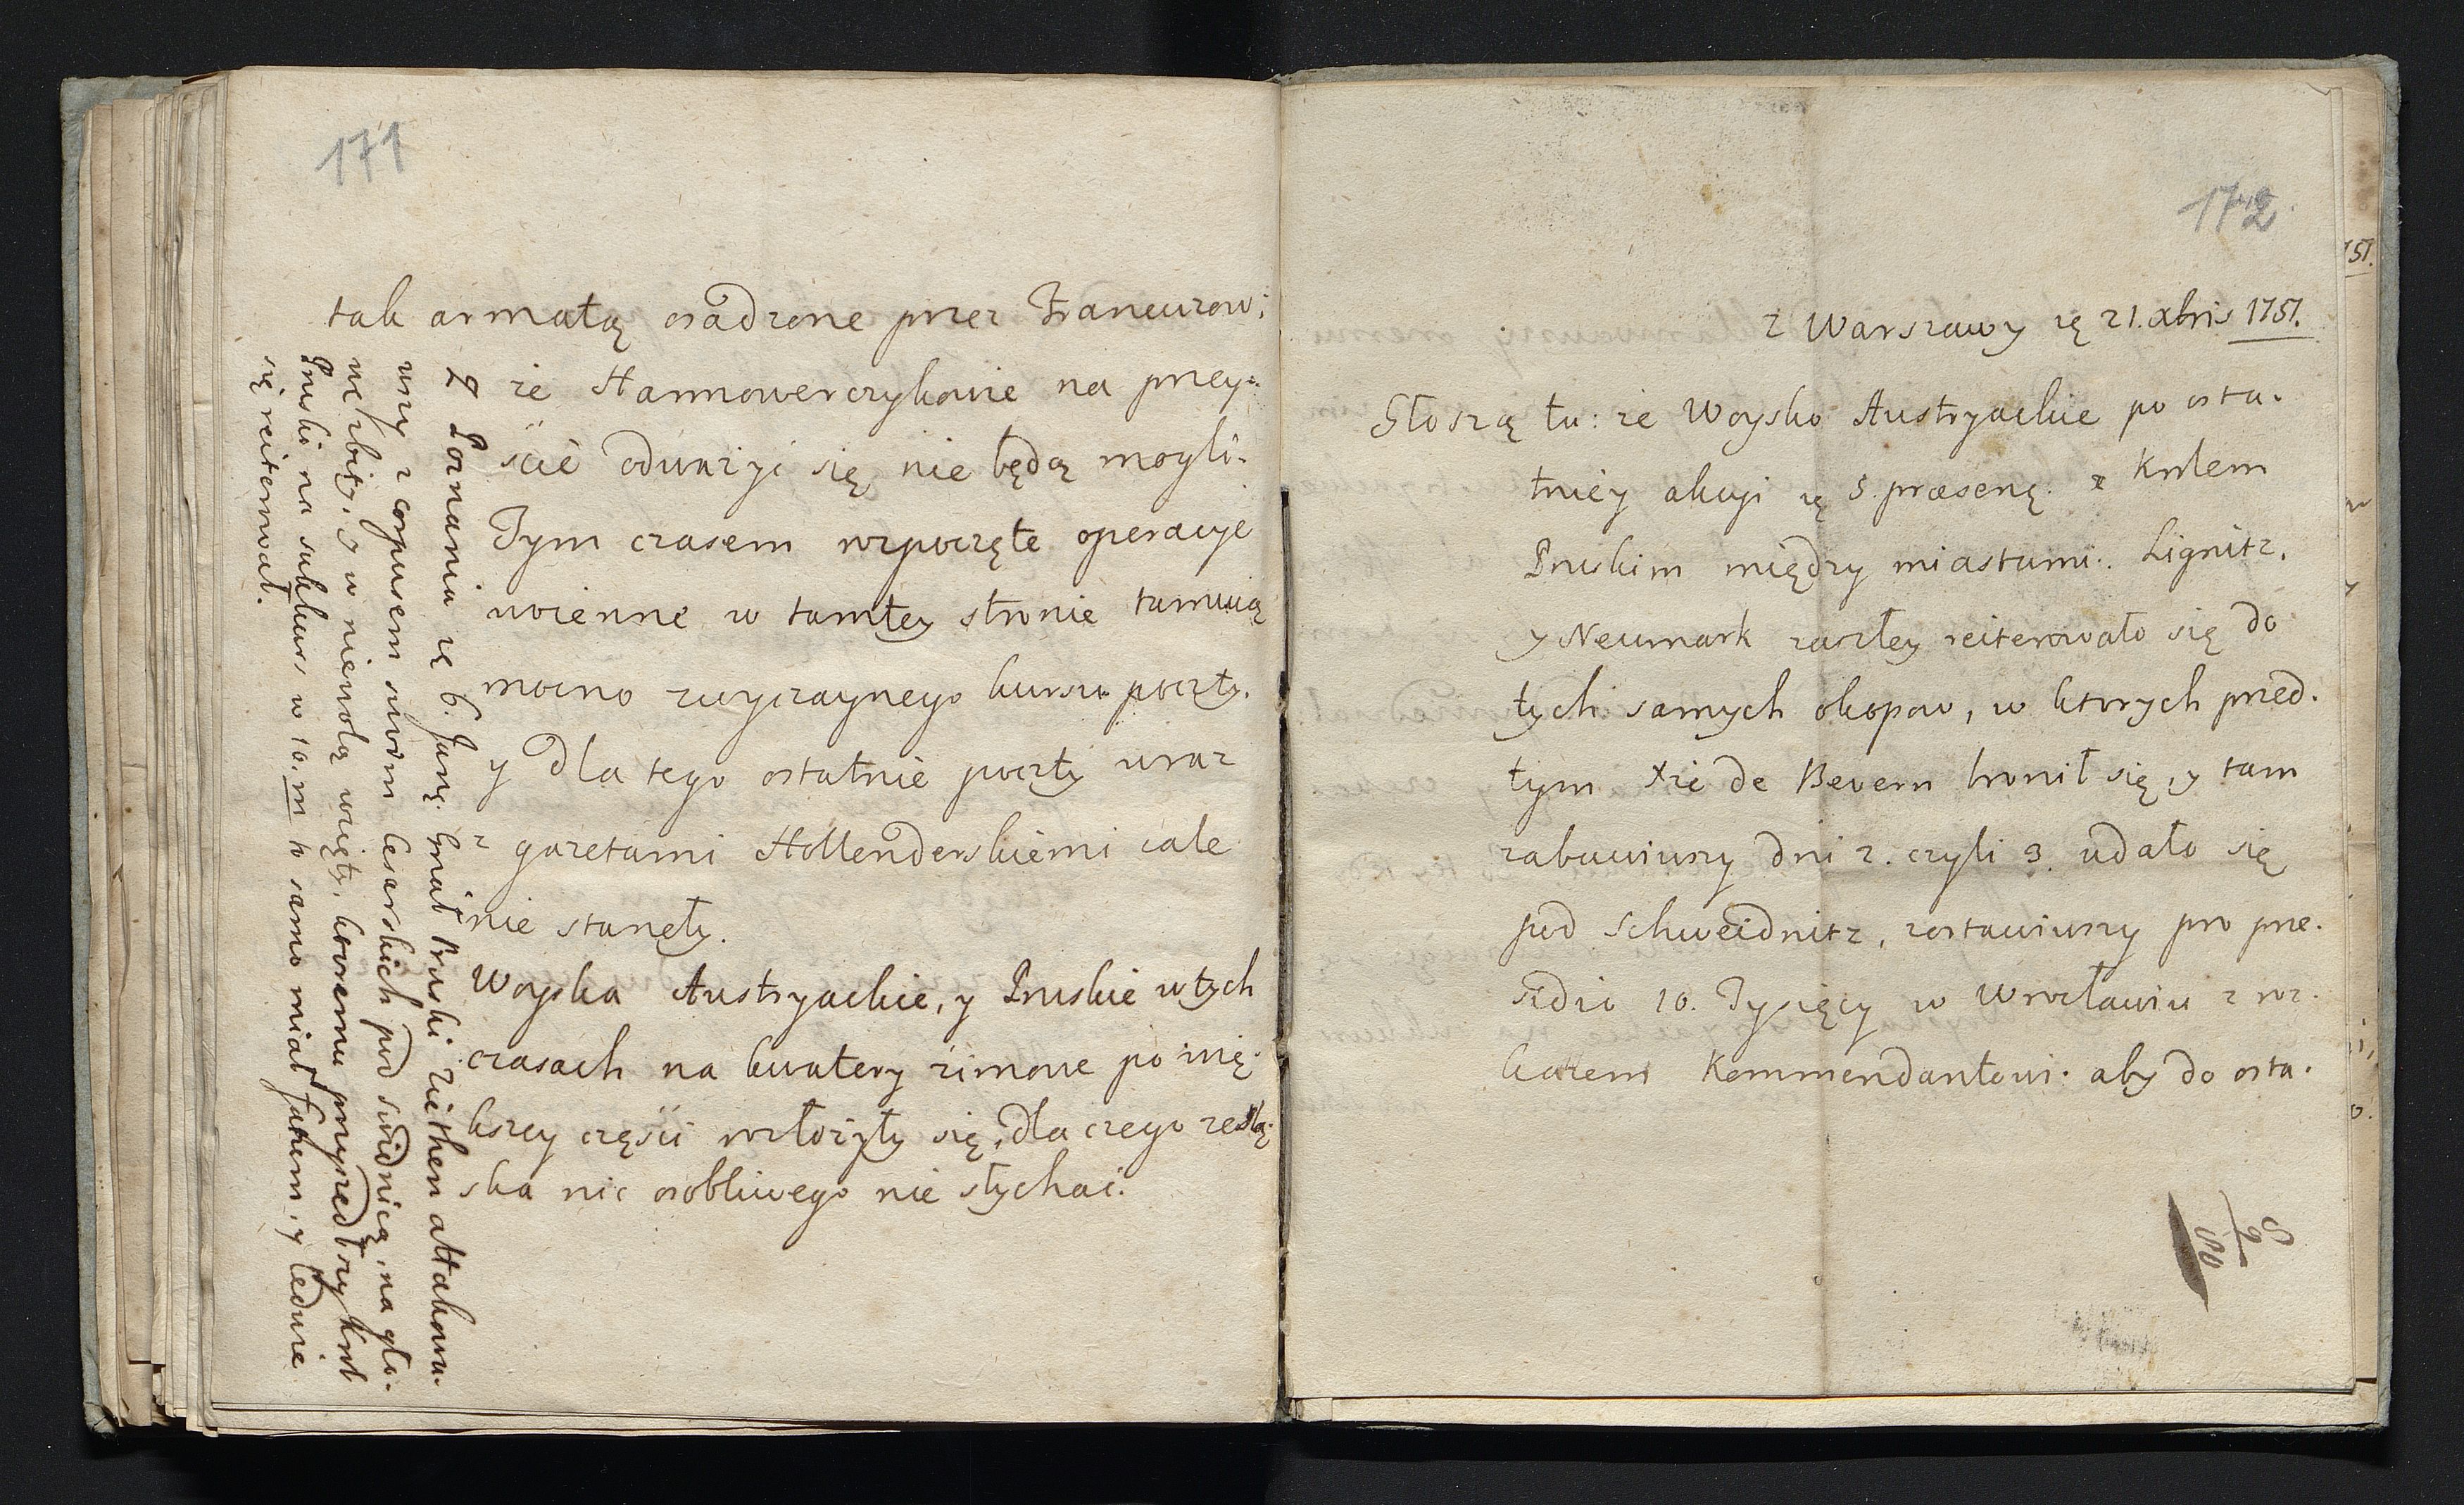 171
tak armatą osadzone przez Francuzow:
że Hannowerczykowie na przey:
ście odważyć się nie będą mogli.
Tym czasem rozpoczęte operacye
woienne w tamtey stronie tamuią
mocno zwyczaynego kursu poczty.
y dla tego ostatnie poczty wraz
z gazetami Hollenderskiemi cale
nie stanęły.
Woyska Austryackie, y Pruskie w tych
czasach na kwatery zimowe po wię.
kszey części rozłożyły się, dla czego ze Slą.
ska nic osobliwego nie słychać.
Z Poznania 6. Janr. Grał Pruski Ziethen attakowa.
wszy z corpusem swoim Cesarskich pod swidnicą, na gło.
wę zbity, y w niewolą wzięty, ktoremu przyszedłszy Krol
Pruski na sukkurs w 10.m to samo miał fatum, y ledwie
się reiterował.
172
z Warszawy 21. Xbris 1757.
Głoszą tu: że Woysko Austryackie po osta.
tniey akcyi 5. præsenę. z Krolem
Pruskim między miastami. Lignitz,
y Neumark zaszłey reiterowało się do
tych samych okopow, w ktorych przed.
tym Xże de Bevern bronił się, y tam
zabawiwszy dni 2. czyli 3. udało się
pod Schweidnitz, zostawiwszy pro præ.
sidio 10. Tysięcy w Wrocławiu z roz.
kazem Kommendantowi. aby do osta.